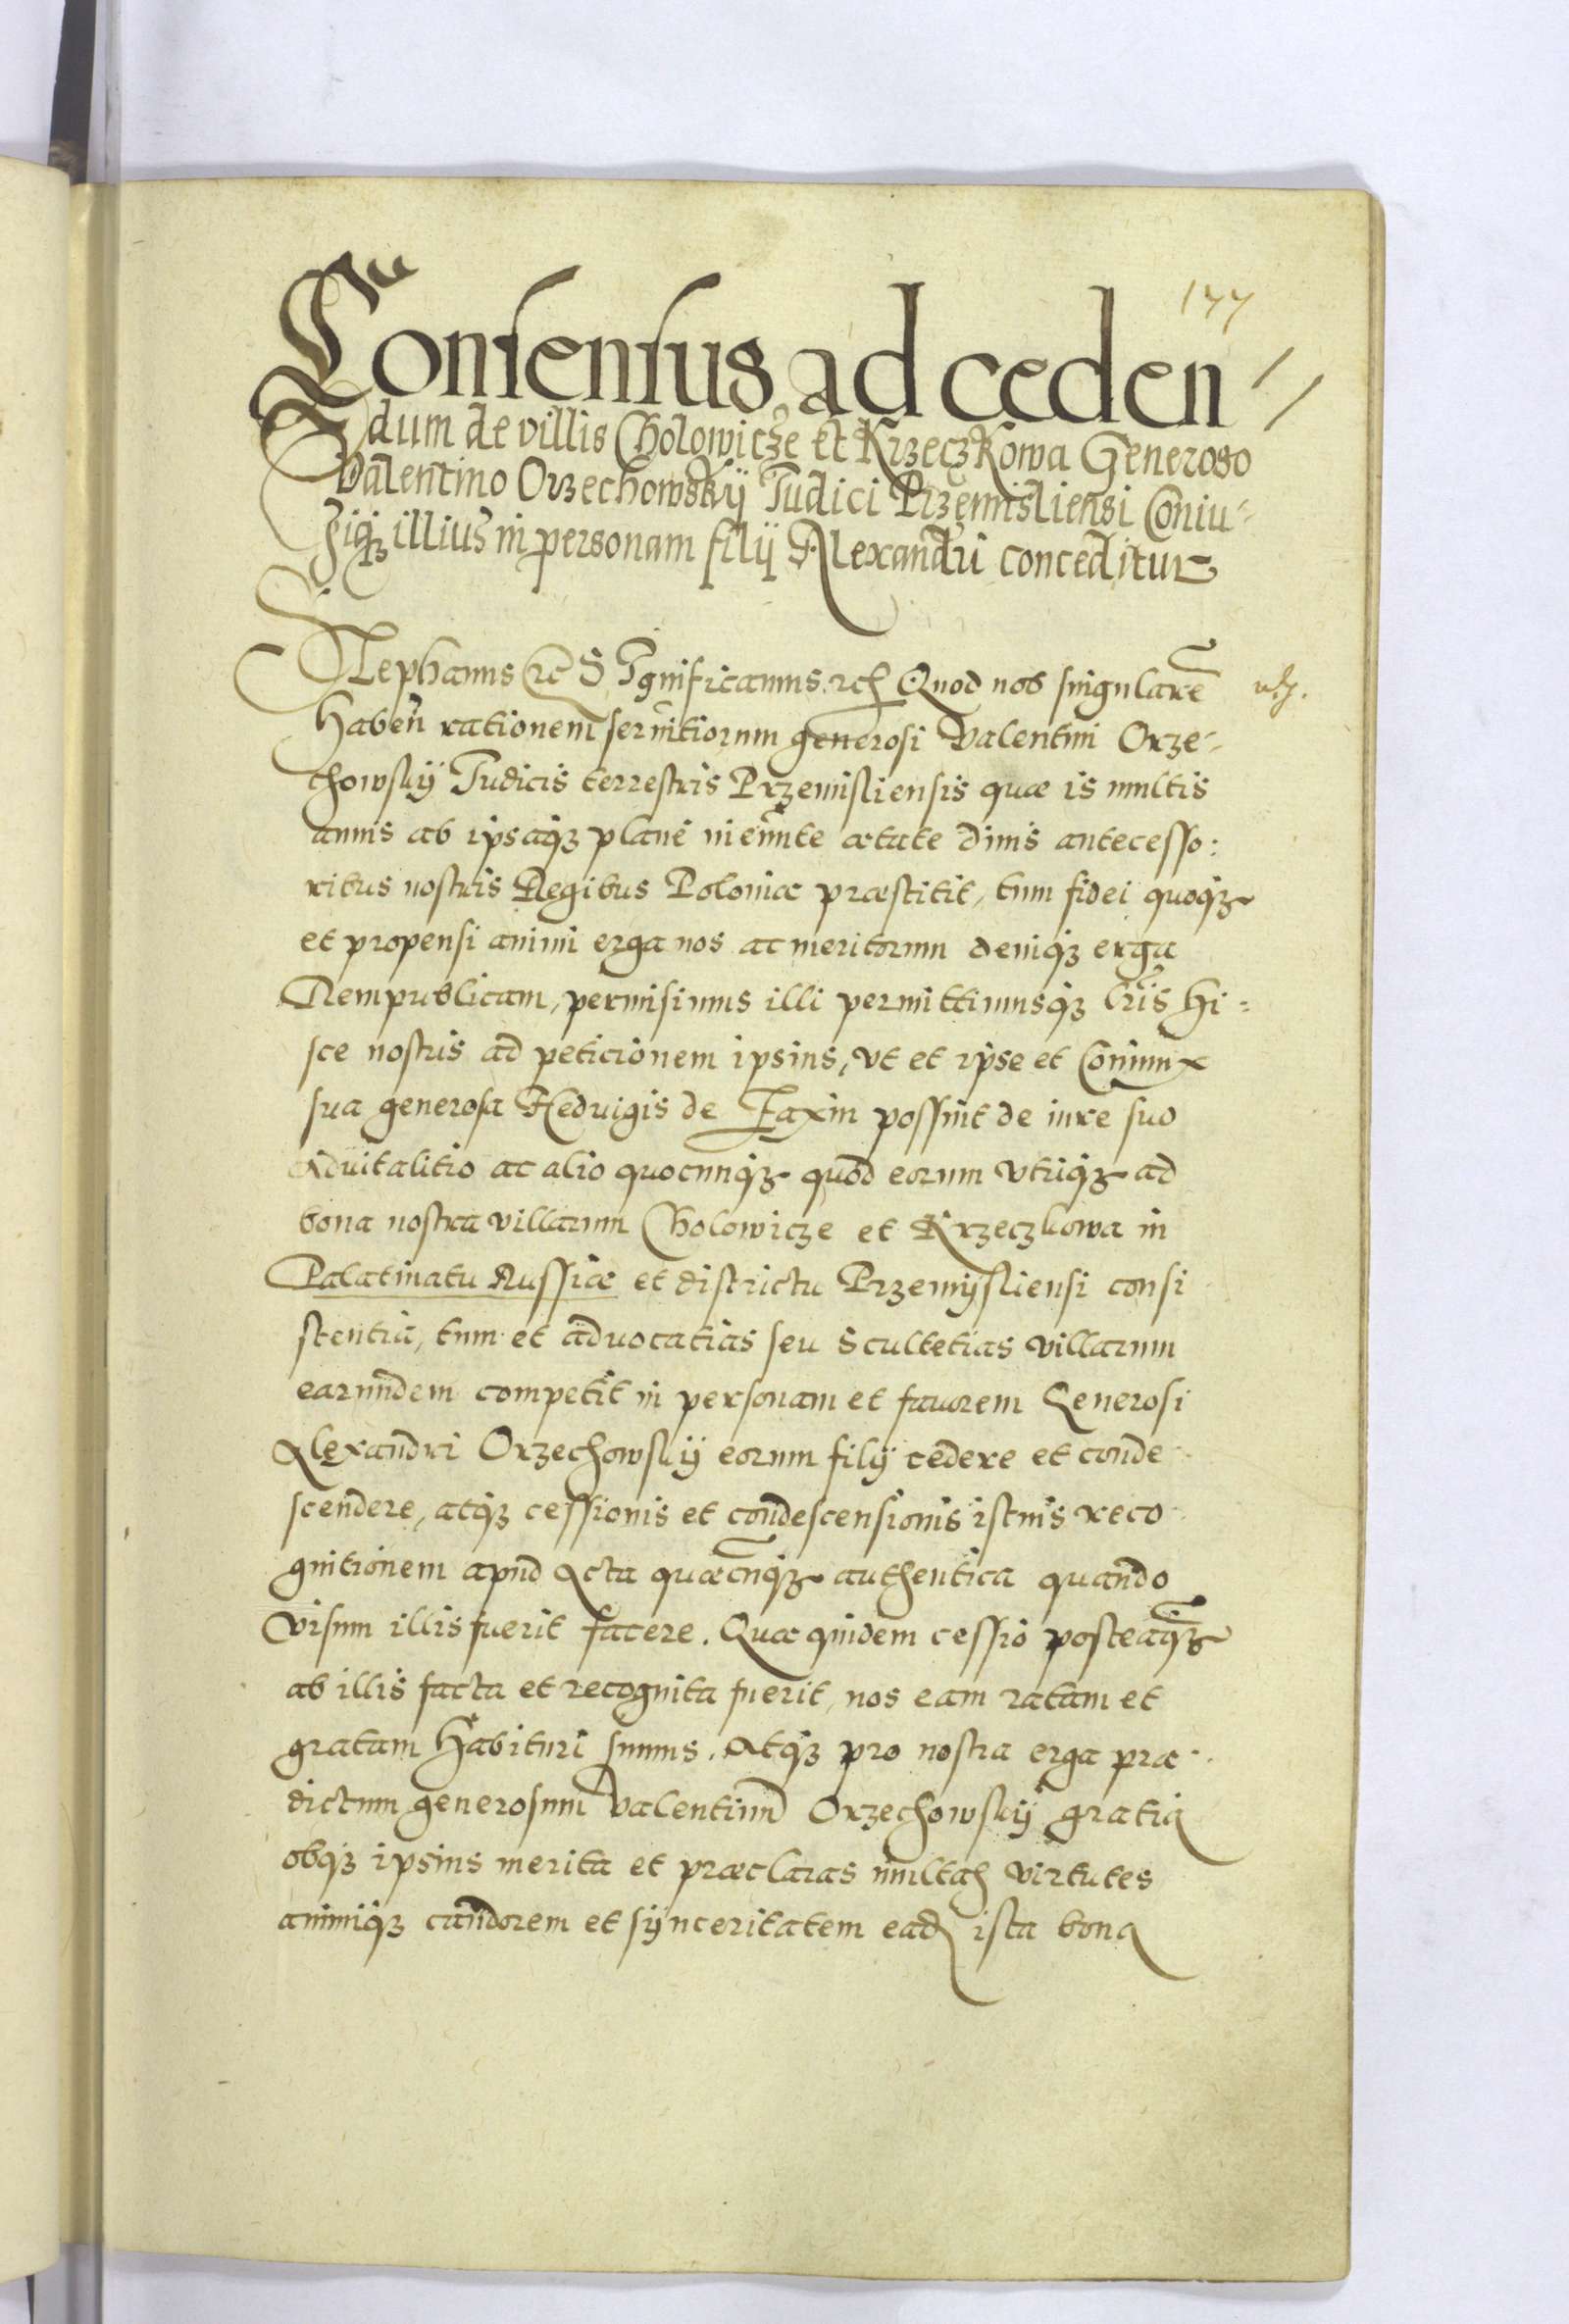 177
Consensus ad ceden
dum de villis Cholowicze et Krzeczkowa Generoso
Valentino Orzechowskÿ Iudici Przemisliensi Coniu-
giq3 illius in personam filÿ Alexandri conceditur
Stephanus etc Significamus etc Quod nos singularē
haben̄ rationem seruitiorum generosi Valentini Orze-
chowskÿ Iudicis terrestris Przemisliensis quæ is multis
annis ab ipsaq3 plane ineunte ætate diuis antecesso:
ribus nostris Regibus Poloniæ præstitit, tum fidei quoq3
et propensi animi erga nos ac meritorum deniq3 erga
Rempublicam, permisimus illi permittimusq3 lr̄is hi:
sce nostris ad peticionem ipsius, vt et ipse et Coniunx
sua generosa Heduigis de Faxin possint de iure suo
aduitalitio ac alio quocunq3 quod eorum vtriq3 ad
bona nostra villarum Cholowicze et Krzeczkowa in
Palatinatu Russiæ et districtu Przemÿsliensi consi
stentia, tum et aduocatias seu Scultetias villarum
earundem competit in personam et fauorem Generosi
Alexandri Orzechowskÿ eorum filÿ cedere et conde
scendere, atq3 cessionis et condescensionis istius reco
gnitionem apud Acta quæcunq3 authentica quando
visum illis fuerit facere. Quæ quidem cessio posteaq3
ab illis facta et recognita fuerit, nos eam ratam et
gratam habituri sumus. Atq3 pro nostra erga præ
dictum generosum Valentinum Orzechowskÿ gratia
obq3 ipsius merita et præclaras multas virtutes
animiq3 candorem et sÿnceritatem ead ista bona